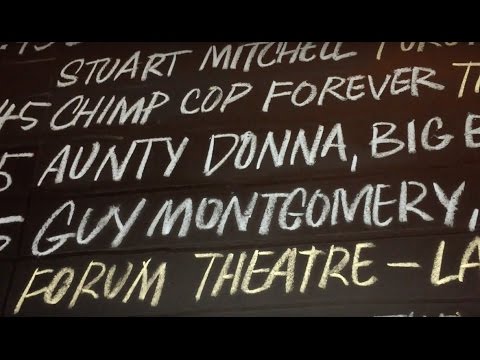 STUART MITCHELL
45 CHIMP COP FOREVER
5 AUNTY DONNA, BIG
5 GUY MONTGOMERY,
FORUM THEATRE – LA